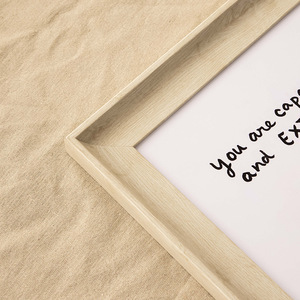 you are cap
and EX